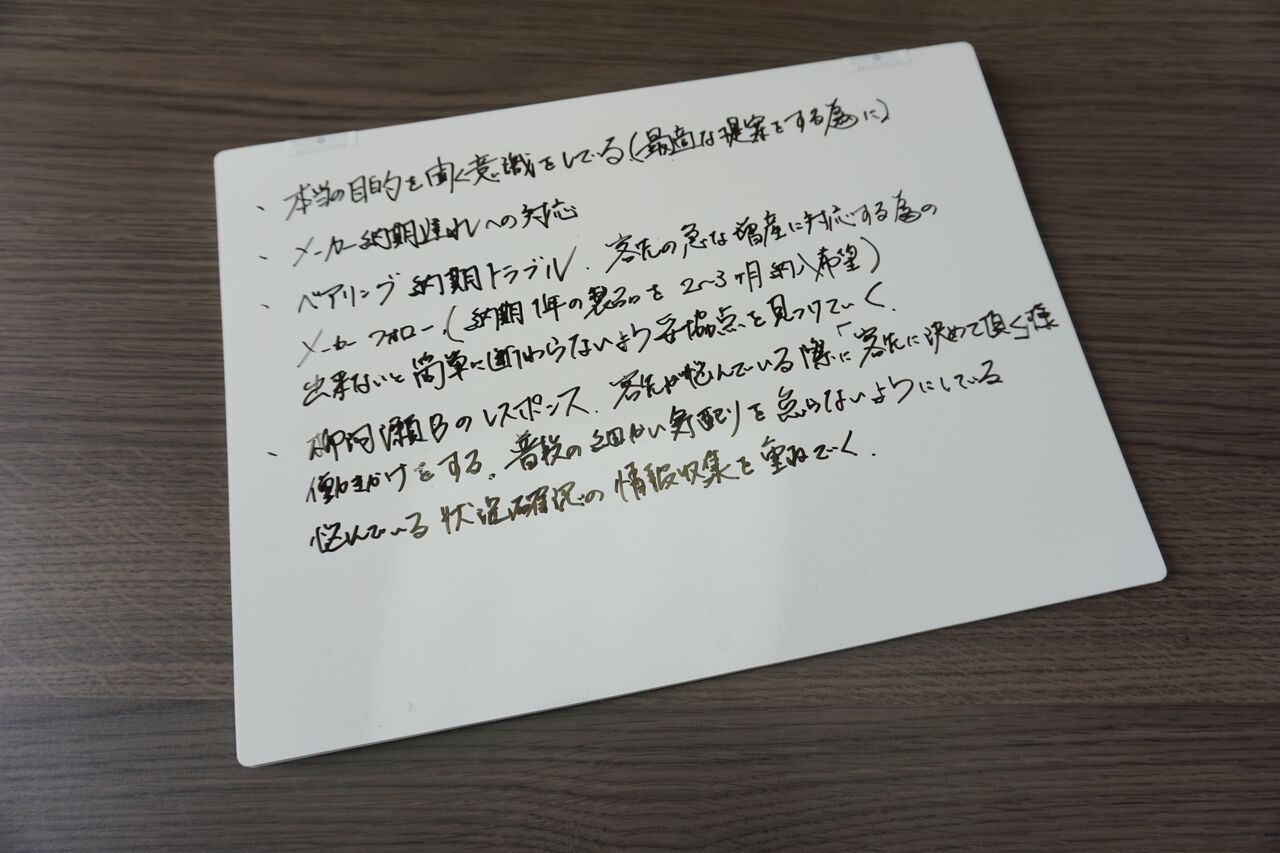 、本当の目的を聞く意識をしている(最適な提案をする為に)
、メーカー納期遅れへの対応
、ベアリング納期トラブル、客先の急な増産に対応する為の
メーカーフォロー、(納期1年の製品を2~3ヶ月納入希望)
出来ないと簡単に断わらないよう妥協点を見つけていく、
、のレスポンス、客先が悩んでいる際に「客先に決めて頂く」様
働きかけをする。普段の細かい気配りを怠らないようにしている
悩んでいる状況確認の情報収集を重ねていく、